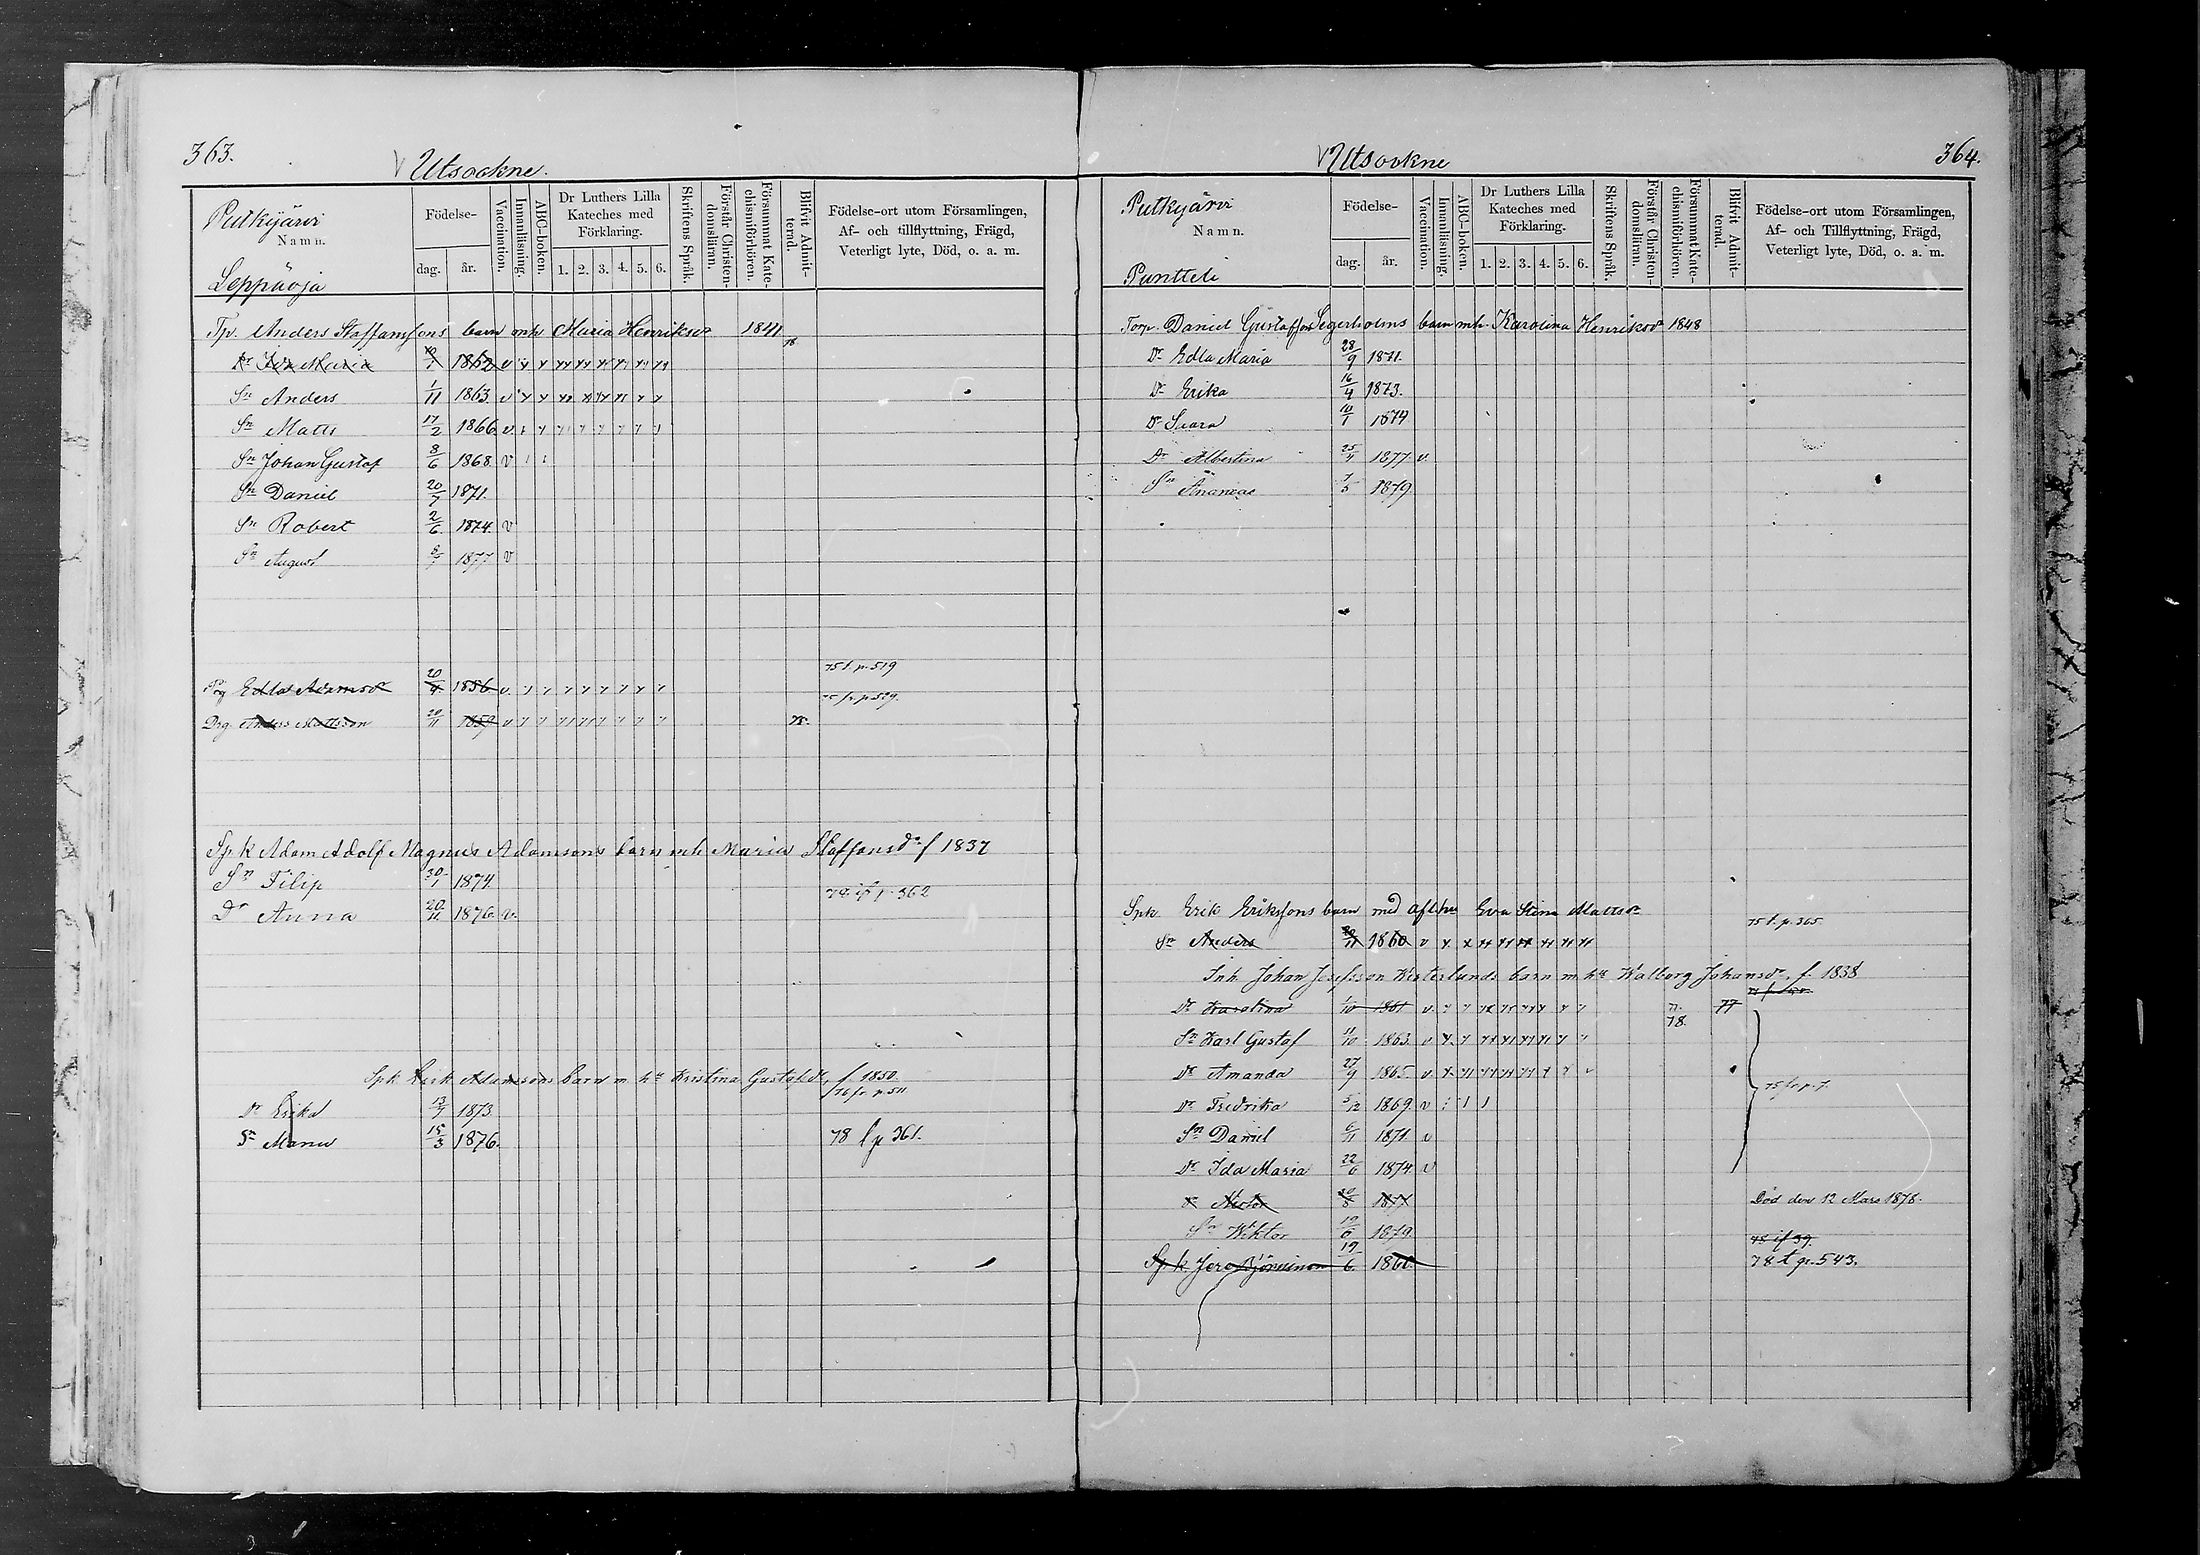 363.
Utsockne.
Putkijärvi
Namn.
Leppäoja
Födelse-
dag.
år.
Vaccination.
Innanläsning.
ABC-boken.
Dr Luthers Lilla Kateches med Förklaring.
1. 2. 3. 4. 5. 6.
Skriftens Språk.
Förstår Christendomsläran.
Försummat Katechismiförhören.
Blifvit Admitterad.
Födelse-ort utom Församlingen,
Af- och tillflyttning, Frägd,
Veterligt lyte, Död, o. a. m.
Tp. Anders Staffanssons barn mh Maria Henriksdr 1841
Dr Maria 1862 v
Sn Anders 1/11 1863 v
Sn Matts 17/2 1866 v
Sn Johan Gustaf 8/6 1868 v
Sn Daniel 20/7 1871.
Sn Robert 2/6 1874. v
Sn August 8/7 1877 v
75 t. p. 519
Edla Adamsdr 20 1856 v
75 fr. p. 529.
Drg Anders Mattsson 20/11 1859 v 78.
Spk Adam Adolf Magnus Adamsons barn mh Maria Staffansdr f 1837
Sn Filip 30/1 1874.
p. 362
Dr Anna 20/11 1876. v.
Spk Erik Adamsons barn m. hu Kristina Gustafsdr, f. 1850.
76 fr. p. 511
Dr Erika 13/7 1873.
Sn Manu 15/3 1876. 78 t p 361.
Utsockne
364.
Putkijärvi
Namn.
Puntteli
Födelse-
dag.
år.
Vaccination.
Innanläsning.
ABC-boken.
Dr Luthers Lilla Kateches med Förklaring.
1. 2. 3. 4. 5. 6.
Skriftens Språk.
Förstår Christendomsläran.
Försummat Katechismiförhören.
Blifvit Admitterad.
Födelse-ort utom Församlingen,
Af- och Tillflyttning, Frägd,
Veterligt lyte, Död, o. a. m.
Torp. Daniel Gustafson Segerholms barn mh. Karolina Henriksdr 1848
Dr Edla Maria 28/9 1871.
Dr Erika 16/4 1873.
Dr Saara 10/1 1874
Dr Albertina 25/4 1877 v.
Sn Ananias 7/5 1879
Spk. Erik Erikssons barn med afl. hu Eva Stina Mattsdr
75 t. p. 365.
Sn Anders 1860 v
Inh. Johan Josefsson Westerlunds barn m hu Walborg Johansdr, f. 1838
Dr Karolina 1/10 1861 v. 77. 78. 77
Sn Karl Gustaf 11/10 1863. v
Dr Amanda 27/9 1865. v
75 fr. p. 7.
Dr Fredrika 5/12 1869. v
Sn Daniel 6/11 1871. v
Dr Ida Maria 22/6 1874. v
Nestor 20/8 1877 Död den 12 Mars 1878.
Sn Wiktor 19/6 1879.
75 if 39.
Spk Jere Björninen 19/6 1860. 78 t p. 543.